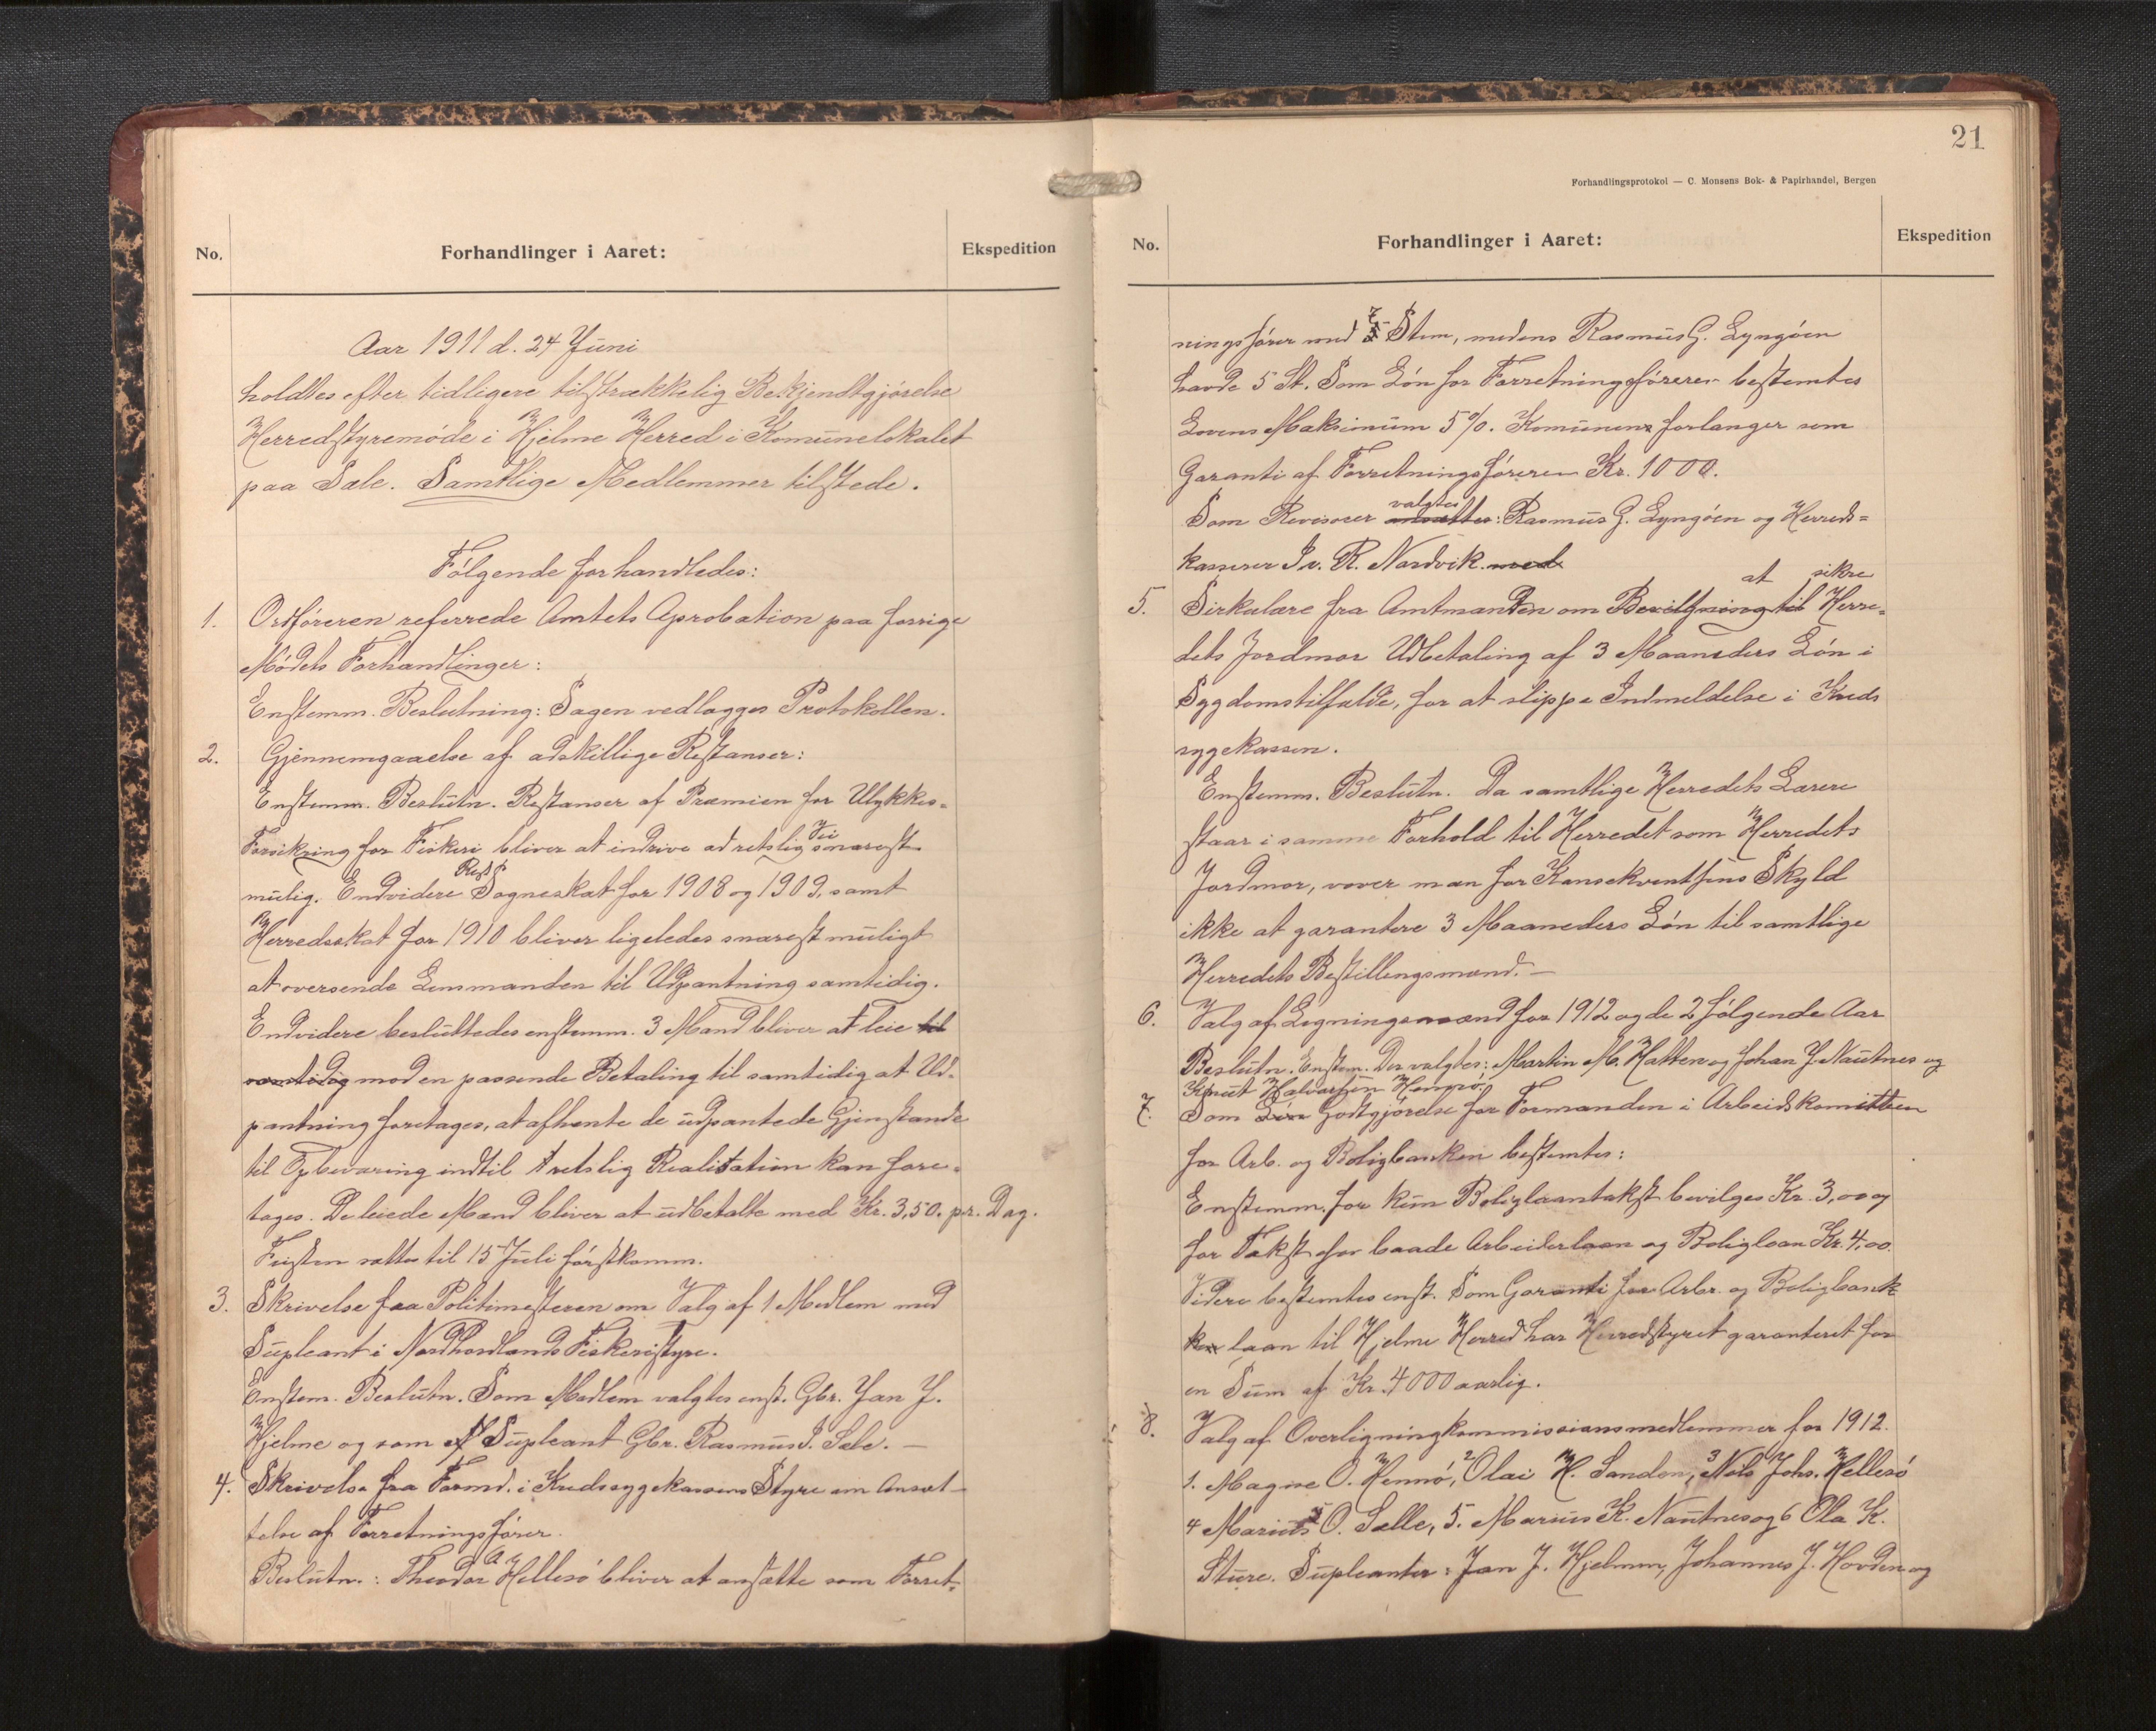 No. Forhandlinger i Aaret: Ekspedition
Aar 1911 d. 24 Juni
holdtes efter tidligere tilstrækkelig Bekjendtgjørelse
Herredstyremøde i Hjelme Herred i Komunelokalet
paa Sæle. Samtlige Medlemmer tilstede.
Følgende forhandledes:
1. Ordføreren referrede Amtets Aprobation paa forrige
Mødets Forhandlinger:
Enstemm. Beslutning: Sagen vedlægges Protokollen.
2. Gjennemgaaelse af adskillige Restanser:
Enstemm. Beslutn. Restanser af Præmien for Ulykkes-
Forsikring for Fiskeri bliver at indrive ad retslig Vei snarest
mulig. Endvidere Rest Sogneskat for 1908 og 1909, samt
Herredsskat for 1910 bliver ligeledes snarest muligt
at oversende Lensmanden til Udpantning samtidig.
Endvidere besluttedes enstemm. 3 Mand bliver at leie til
samtidig mod en passende Betaling til samtidig at Ud-
pantning foretages, at afhente de udpantede Gjenstande
til Opbevaring indtil retslig Realisation kan fore-
tages. De leiede Mænd bliver at udbetalte med Kr. 3,50. pr. Dag.
Fristen sættes til 15 Juli førstkomm.
3. Skrivelse fra Politimesteren om Valg af 1 Medlem med
Supleant i Nordhordlands Fiskeristyre.
Enstem. Beslutn. Som Medlem valgtes enst. Gbr. Jan J.
Hjelme og som Supleant Gbr. Rasmus I. Sæle. —
4. Skrivelse fra Formd. i Kredssygekassens Styre om Ansæt-
telse af Forretningsfører.
Beslutn.: Theodor A Hellesø bliver at ansætte som Forret-
21
Forhandlingsprotokol — C. Monsens Bok- & Papirhandel, Bergen
No. Forhandlinger i Aaret: Ekspedition
ningsfører med 7 Stem, medens Rasmus G. Lyngøen
havde 5 St. Som Løn for Forretningsføreren bestemtes
Lovens Maksimum 5%. Komunen forlanger som
Garanti af Forretningsføreren Kr. 1000.
valgtes
Som Revisorer ansættes: Rasmus G. Lyngøen og Herreds=
kasserer Iv. R. Nordvik. med
at sikre
5. Sirkulære fra Amtmanden om Bevilgning til Herre=
dets Jordmor Udbetaling af 3 Maaneders Løn i
Sygdomstilfælde, for at slippe Indmeldelse i Kreds
sygekassen.
Enstemm. Beslutn. Da samtlige Herredets Lærere
staar i samme Forhold til Herredet som Herredets
Jordmor, vover man for Konsekventsens Skyld
ikke at garantere 3 Maaneders Løn til samtlige
Herredets Bestillingsmænd. —
6. Valg af Ligningsmænd for 1912 og de 2 følgende Aar
Beslutn. Enstem. Der valgtes: Martin M. Hatten og Johan J. Nautnes og
Knut Halvorsen Hernø.
7. Som Løn Godtgjørelse for Formanden i Arbeidskomitteen
for Arb. og Boligbanken bestemtes:
Enstemm. for kun Boliglaantakst bevilges Kr. 3,00 og
for Takst for baade Arbeiderlaan og Boliglaan Kr. 4,00.
Videre bestemtes enst. Som Garanti for Arbr. og Boligbank
ken laan til Hjelme Herred har Herredstyret garanteret for
en Sum af Kr. 4000 aarlig.
8. Valg af Overligningkommissionsmedlemmer for 1912.
1. Magne O. Hernø, 2 Olai H. Sandøn, 3 Nils Johs. Hellesø
4 Marius O. Sælle, 5. Marius K. Nautnes og 6 Ola K.
Sture. Supleanter: Jan J. Hjelmen, Johannes J. Hovden og